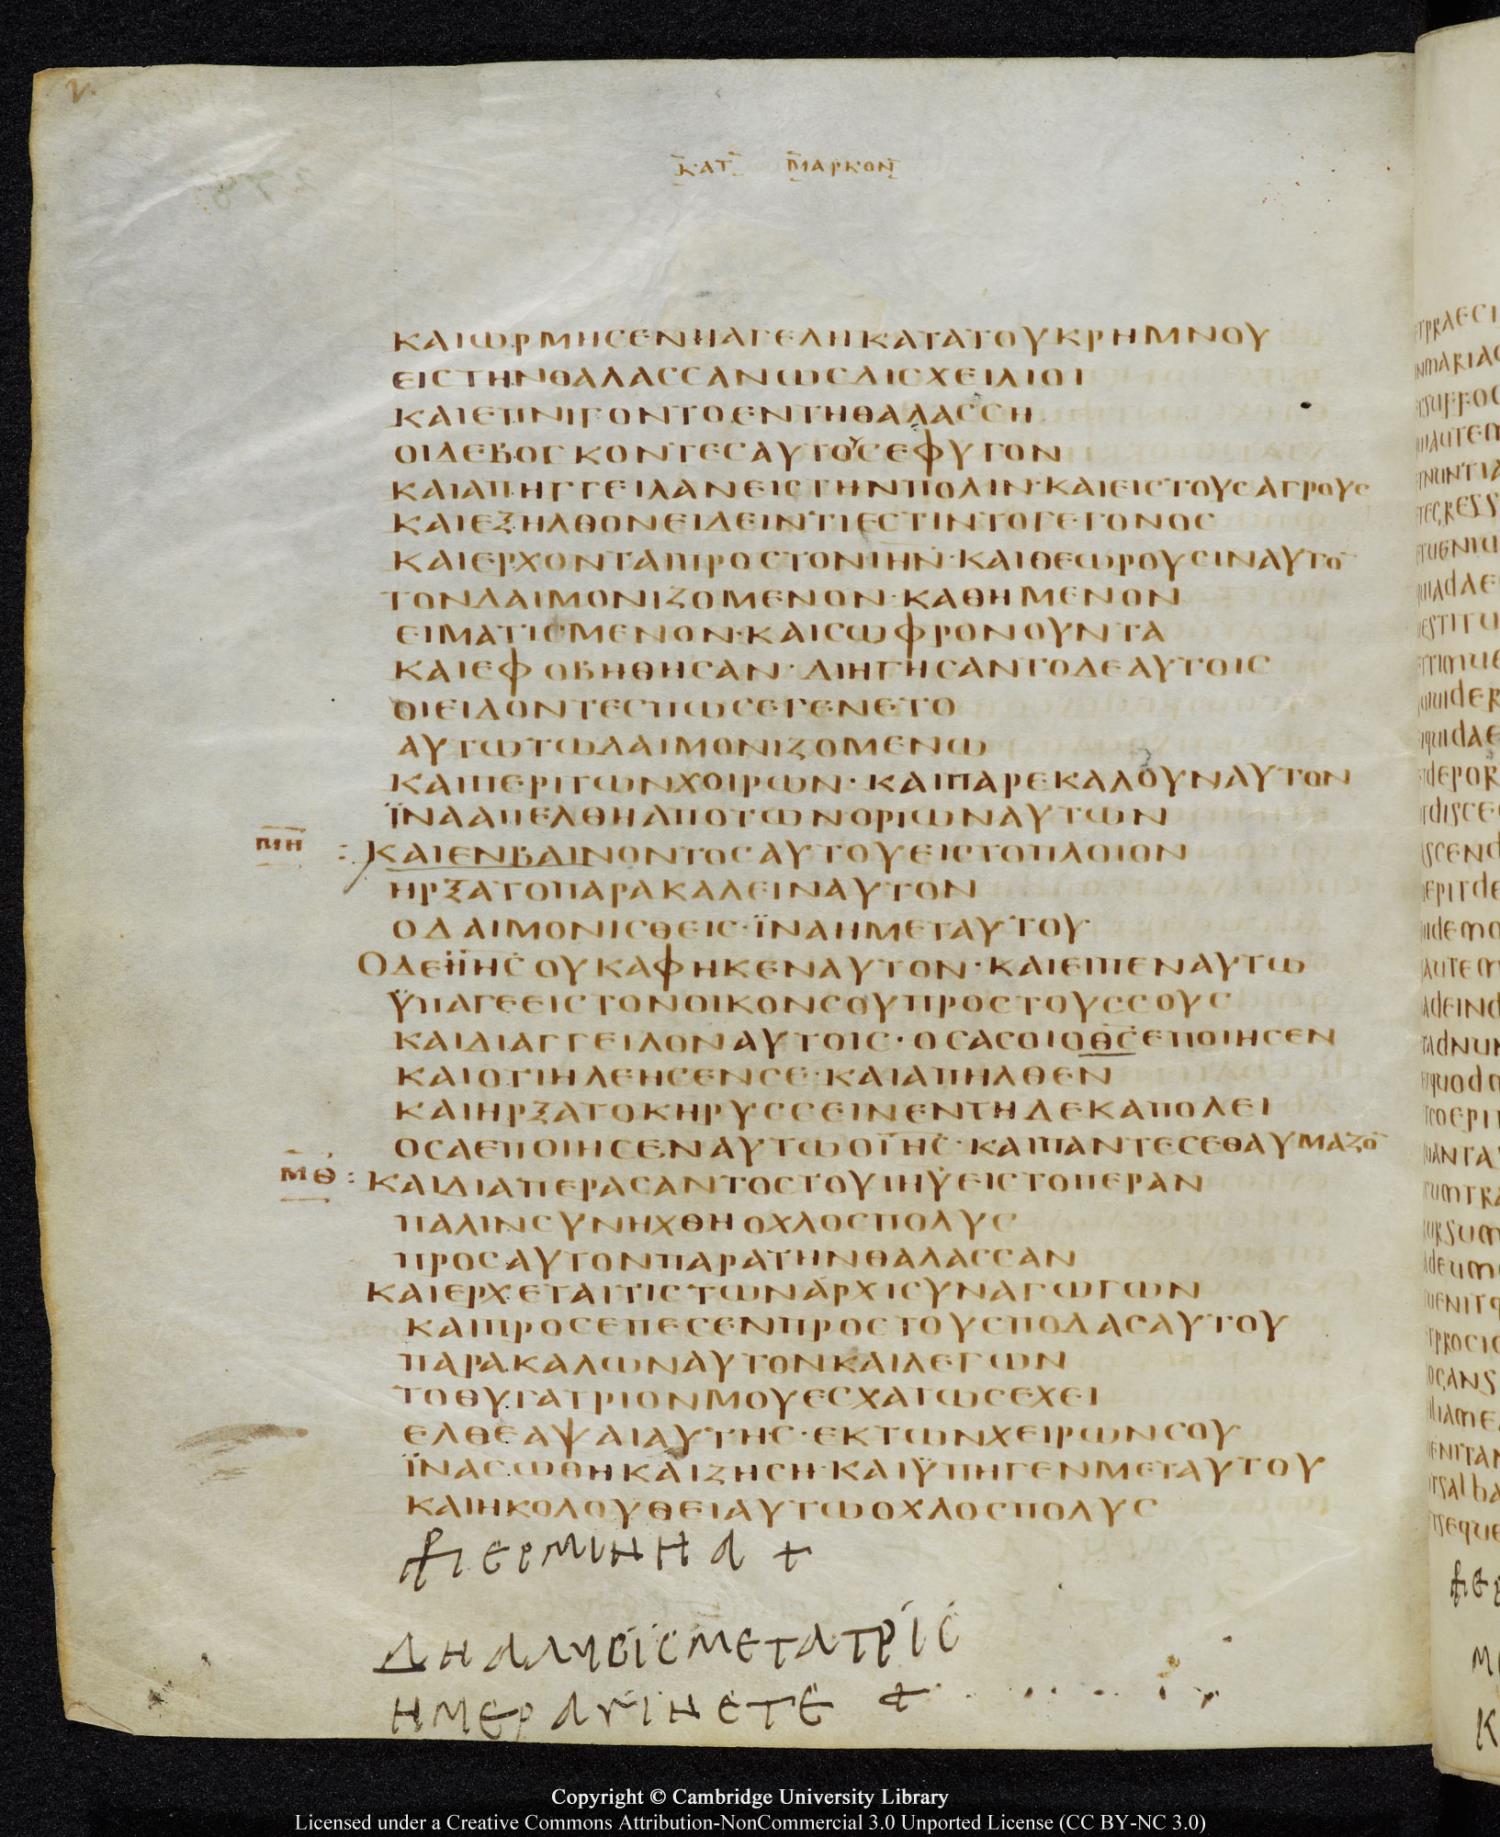 ΚΑΤ ΜΑΡΚΟΝ
ΚΑΙΩΡΜΗСЄΝΗΑΓЄΛΗΚΑΤΑΤΟΥΚΡΗΜΝΟΥ
ЄΙСΤΗΝΘΑΛΑССΑΝΩСΔΙСΧЄΙΛΙΟΙ
ΚΑΙЄΠΝΙΓΟΝΤΟЄΝΤΗΘΑΛΑССΗ
ΟΙΔЄΒΟСΚΟΝΤЄСΑΥΤΟΥСЄΦΥΓΟΝ
ΚΑΙΑΠΗΓΓЄΙΛΑΝЄΙСΤΗΝΠΟΛΙΝ·ΚΑΙЄΙСΤΟΥСΑΓΡΟΥС
ΚΑΙЄΞΗΛΘΟΝЄΙΔЄΙΝΤΙЄСΤΙΝΤΟΓЄΓΟΝΟС
ΚΑΙЄΡΧΟΝΤΑΙΠΡΟСΤΟΝΙΗΝ·ΚΑΙΘЄΩΡΟΥСΙΝΑΥΤΟ̅
ΤΟΝΔΑΙΜΟΝΙΖΟΜЄΝΟΝ·ΚΑΘΗΜЄΝΟΝ
ЄΙΜΑΤΙСΜЄΝΟΝ·ΚΑΙСΩΦΡΟΝΟΥΝΤΑ
ΚΑΙЄΦΟΒΗΘΗСΑΝ·ΔΙΗΓΗСΑΝΤΟΔЄΑΥΤΟΙС
ΟΙЄΙΔΟΝΤЄСΠΩСЄΓЄΝЄΤΟ
ΑΥΤΩΤΩΔΑΙΜΟΝΙΖΟΜЄΝΩ
ΚΑΙΠЄΡΙΤΩΝΧΟΙΡΩΝ·ΚΑΙΠΑΡЄΚΑΛΟΥΝΑΥΤΟΝ
ΪΝΑΑΠЄΛΘΗΑΠΟΤΩΝΟΡΙΩΝΑΥΤΩΝ
ΜΗ : ΚΑΙЄΝΒΑΙΝΟΝΤΟСΑΥΤΟΥЄΙСΤΟΠΛΟΙΟΝ
ΗΡΞΑΤΟΠΑΡΑΚΑΛЄΙΝΑΥΤΟΝ
ΟΔΑΙΜΟΝΙСΘЄΙС·ΪΝΑΗΜЄΤΑΥΤΟΥ
ΟΔЄΙΗС ΟΥΚΑΦΗΚЄΝΑΥΤΟΝ·ΚΑΙЄΙΠЄΝΑΥΤΩ
ΫΠΑΓЄЄΙСΤΟΝΟΙΚΟΝСΟΥΠΡΟСΤΟΥССΟΥС
ΚΑΙΔΙΑΓΓЄΙΛΟΝΑΥΤΟΙС·ΟСΑСΟΙΟΘСЄΠΟΙΗСЄΝ
ΚΑΙΟΤΙΗΛЄΗСЄΝСЄ·ΚΑΙΑΠΗΛΘЄΝ
ΚΑΙΗΡΞΑΤΟΚΗΡΥССЄΙΝЄΝΤΗΔЄΚΑΠΟΛЄΙ
ΟСΑЄΠΟΙΗСЄΝΑΥΤΩΟΙΗС·ΚΑΙΠΑΝΤЄСЄΘΑΥΜΑΖΟ̅
ΜΘ : ΚΑΙΔΙΑΠЄΡΑСΑΝΤΟСΤΟΥΙΗΥЄΙСΤΟΠЄΡΑΝ
ΠΑΛΙΝСΥΝΗΧΘΗΟΧΛΟСΠΟΛΥС
ΠΡΟСΑΥΤΟΝΠΑΡΑΤΗΝΘΑΛΑССΑΝ
ΚΑΙЄΡΧЄΤΑΙΤΙСΤΩΝΑΡΧΙСΥΝΑΓΩΓΩΝ
ΚΑΙΠΡΟСЄΠЄСЄΝΠΡΟСΤΟΥСΠΟΔΑСΑΥΤΟΥ
ΠΑΡΑΚΑΛΩΝΑΥΤΟΝΚΑΙΛЄΓΩΝ
ΤΟΘΥΓΑΤΡΙΟΝΜΟΥЄСΧΑΤΩСЄΧЄΙ
ЄΛΘЄΑΨΑΙΑΥΤΗС·ЄΚΤΩΝΧЄΙΡΩΝСΟΥ
ΪΝΑСΩΘΗΚΑΙΖΗСΗ·ΚΑΙΫΠΗΓЄΝΜЄΤΑΥΤΟΥ
ΚΑΙΗΚΟΛΟΥΘЄΙΑΥΤΩΟΧΛΟСΠΟΛΥС
ЄΡΜΙΝΗΑ +
ΔΗΑΛΥСΙСΜЄΤΑΤΡΙС
ΗΜЄΡΑΓΙΝЄΤЄ +
Copyright © Cambridge University Library
Licensed under a Creative Commons Attribution-NonCommercial 3.0 Unported License (CC BY-NC 3.0)